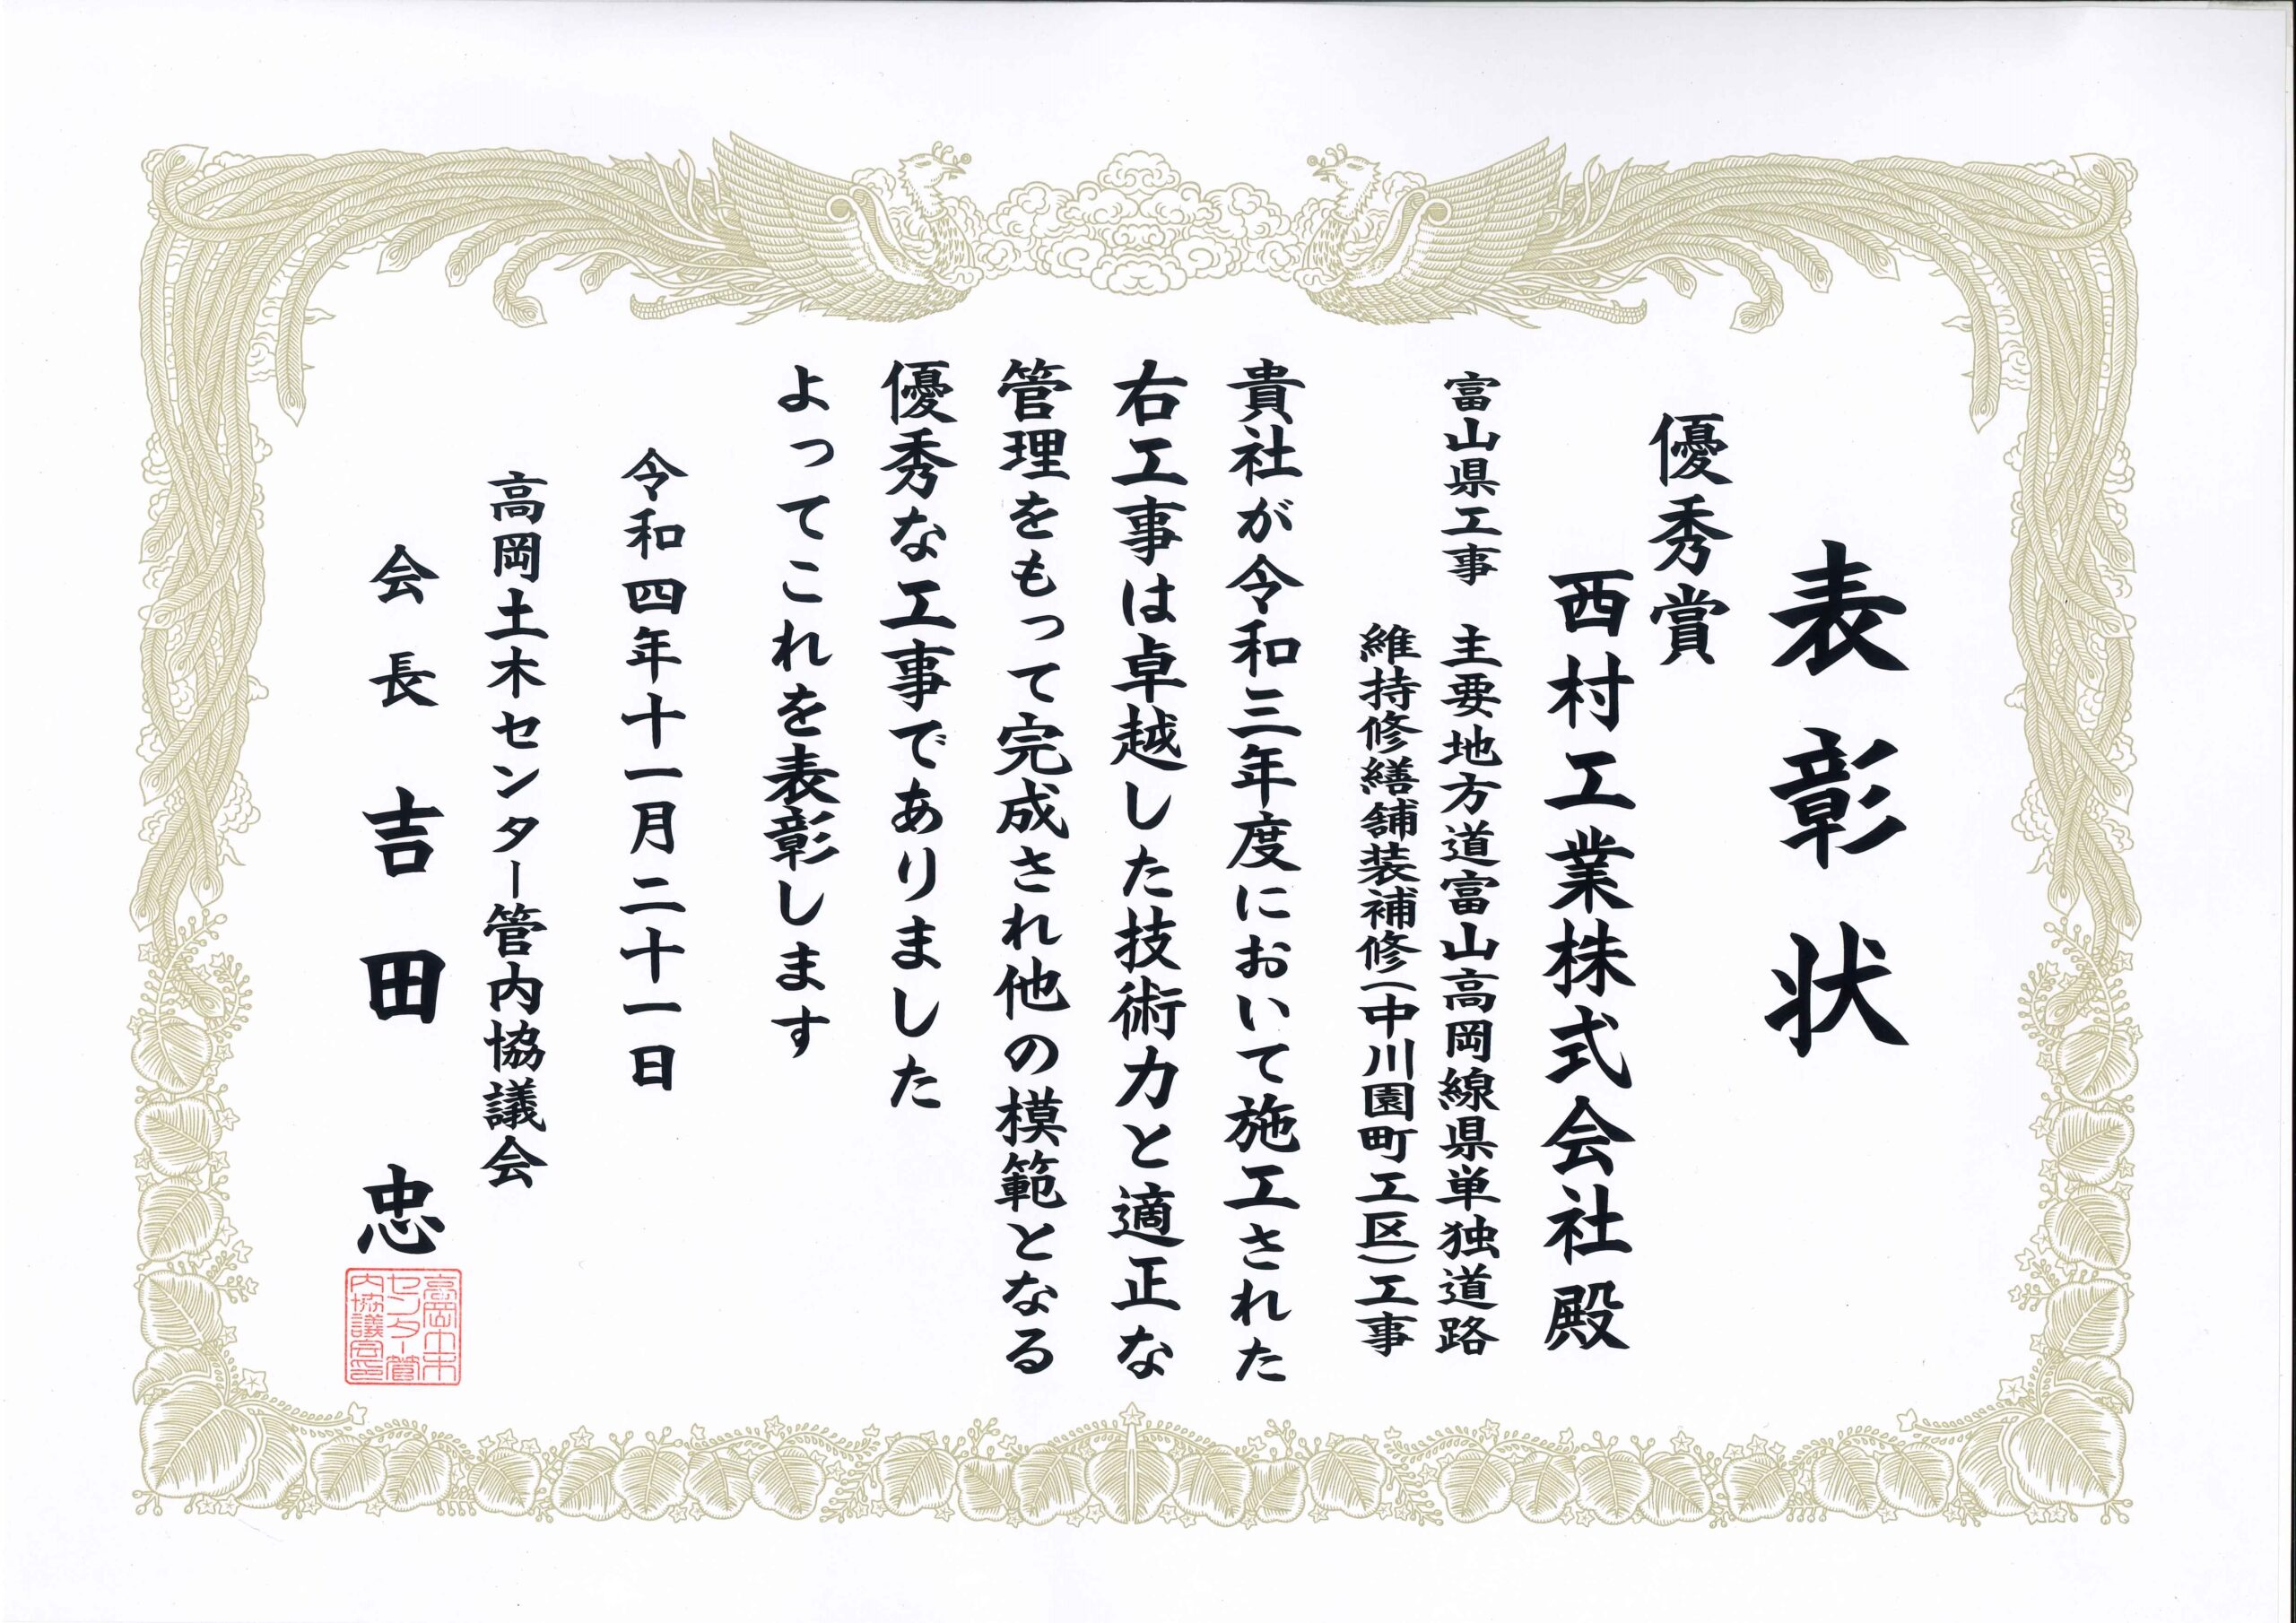 表彰状
優秀賞
西村工業株式会社殿
富山県工事 主要地方道富山高岡線県単独道路
維持修繕舗装補修(中川園町工区)工事
貴社が令和三年度において施工された
右工事は卓越した技術力と適正な
管理をもって完成され他の模範となる
優秀な工事でありました
よってこれを表彰します
令和四年十一月二十一日
高岡土木センター管内協議会
会長 吉田 忠
高岡土木
センター管
内協議会印